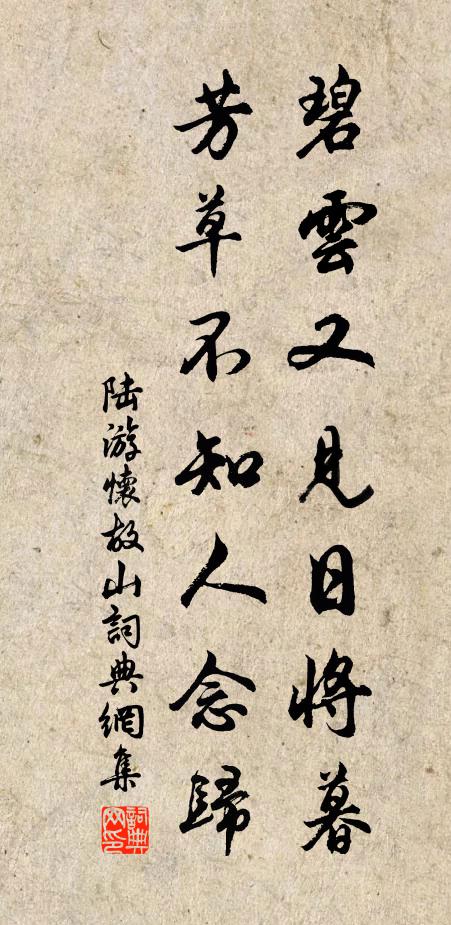 碧雲又見日將暮
芳草不知人念歸
陸游懷故山詞典網集
詞典网印